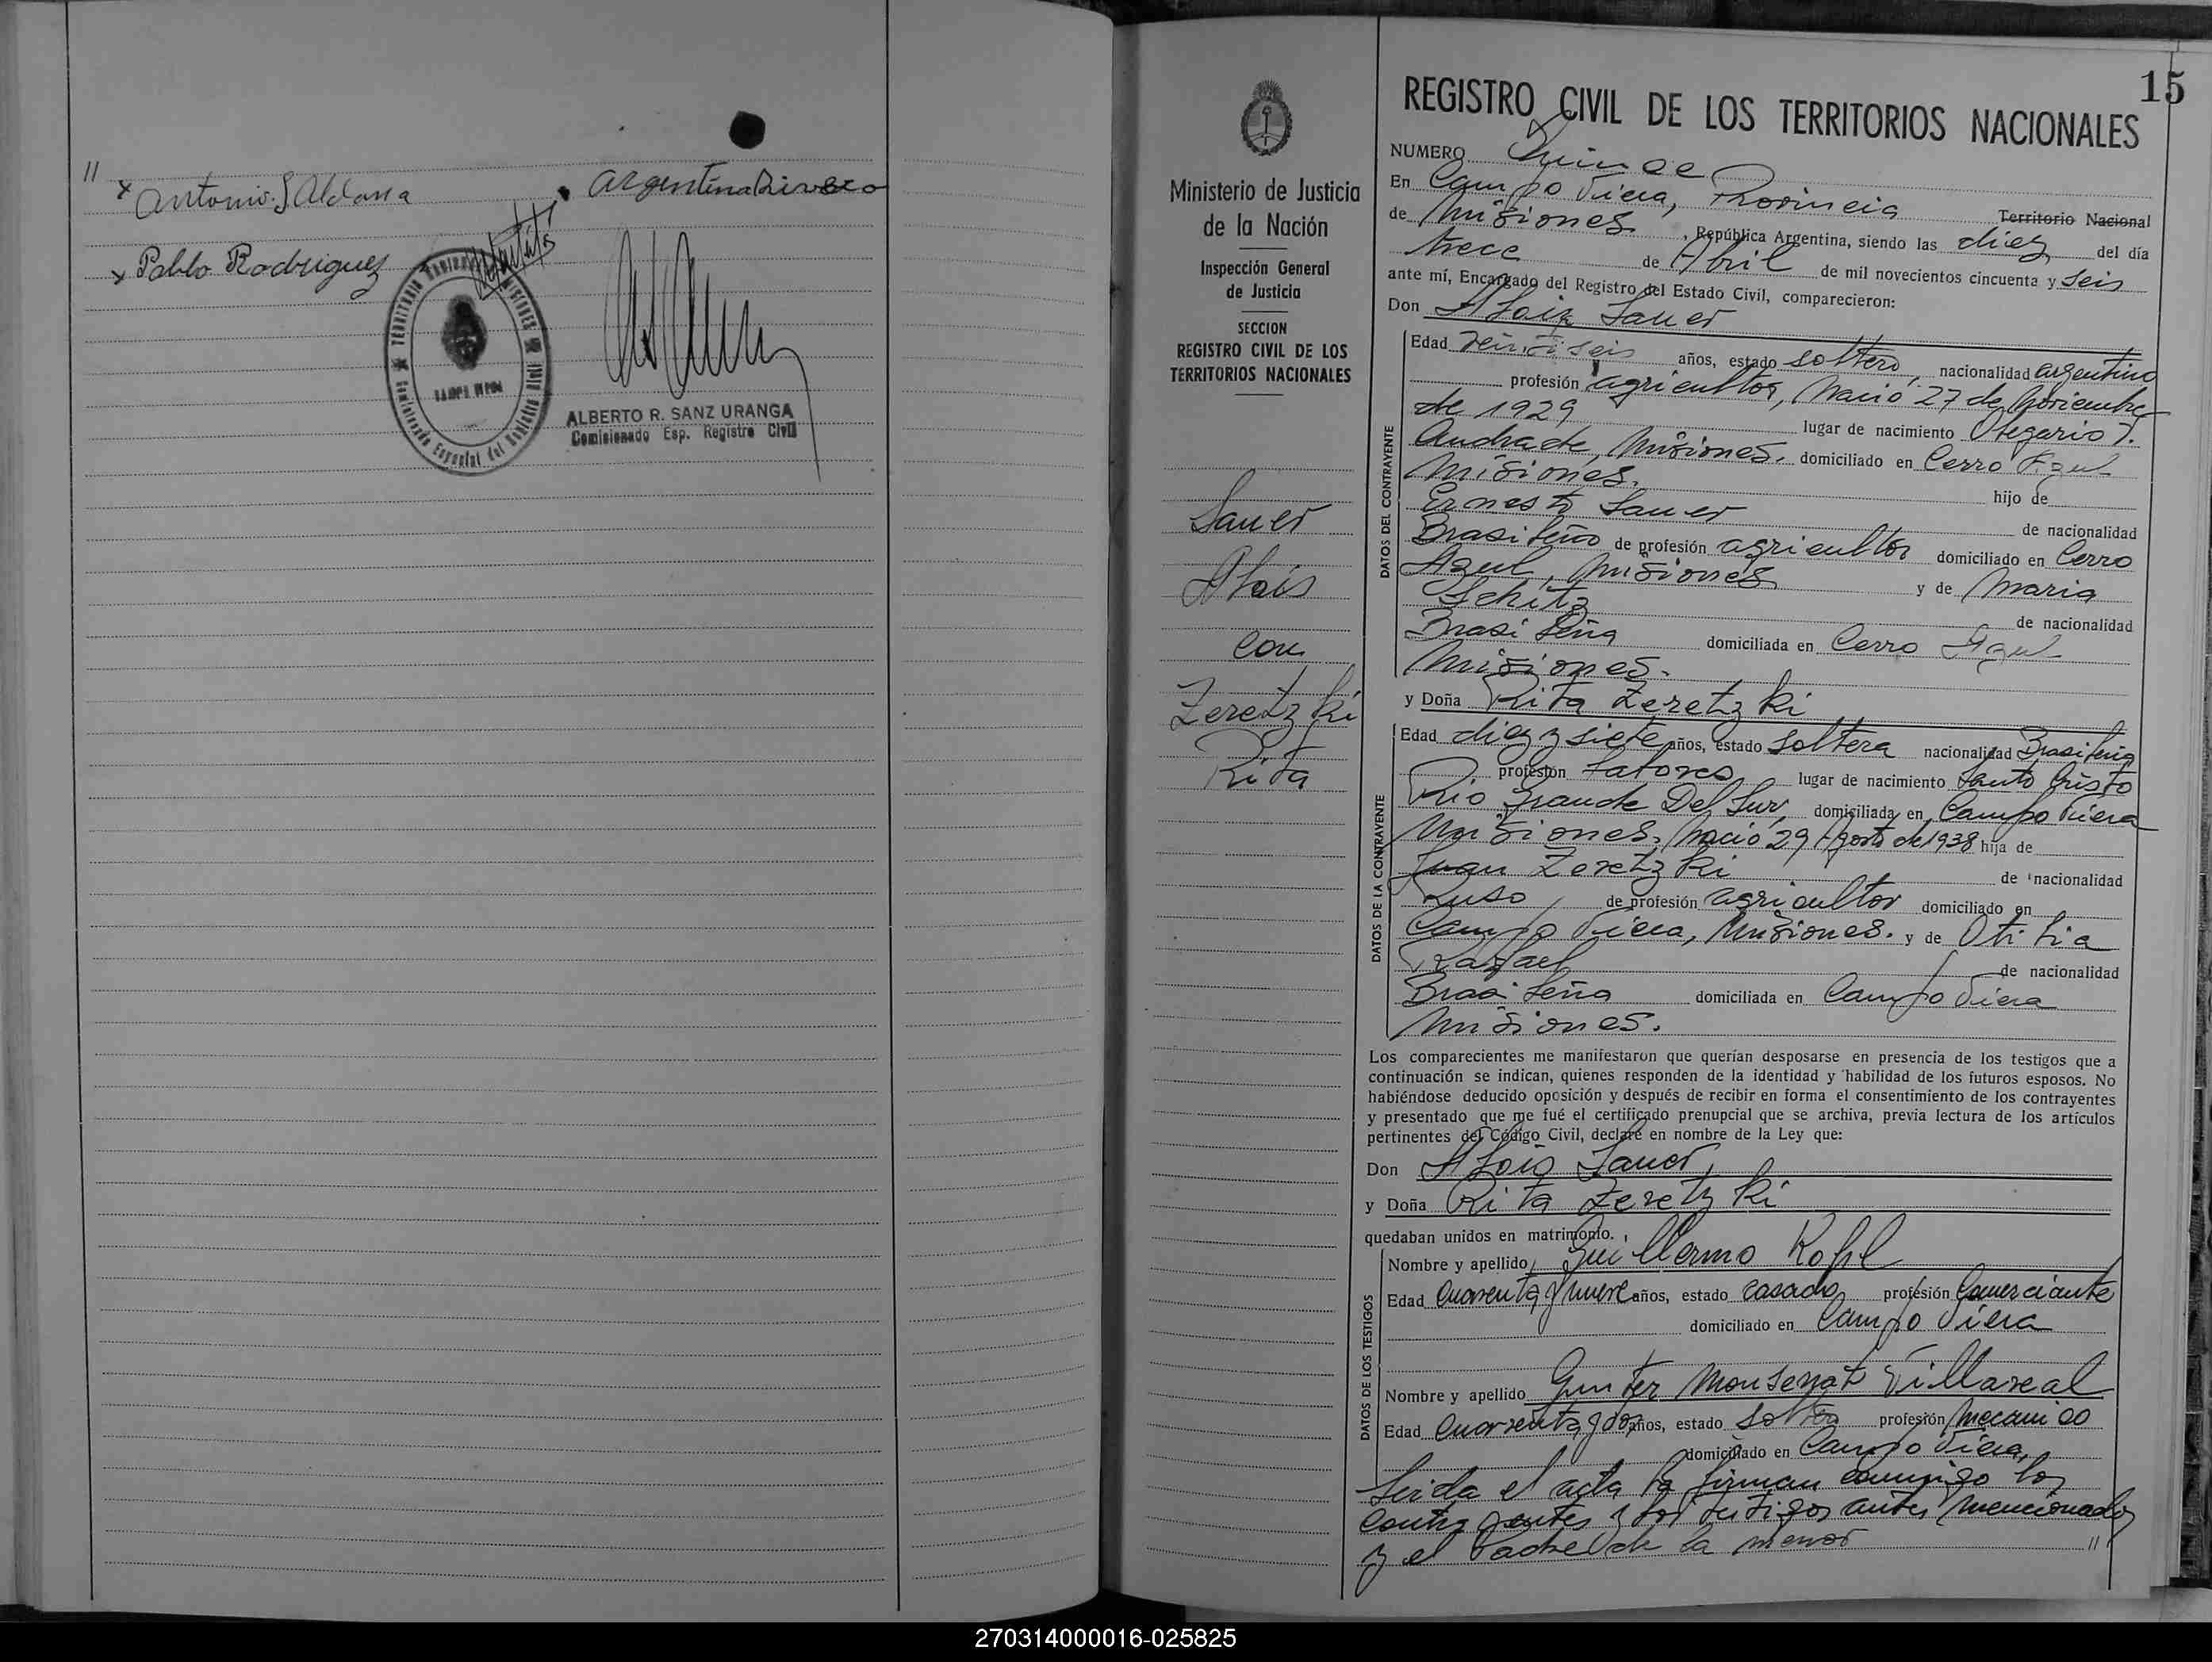 //
x Antonio S Aldana
Argentina Rivero
x Pablo Rodriguez
ALBERTO R. SANZ URANGA
Comisionado Esp. Registro Civil
15
REGISTRO CIVIL DE LOS TERRITORIOS NACIONALES
Ministerio de Justicia
de la Nación
Inspección General
de Justicia
SECCION
REGISTRO CIVIL DE LOS
TERRITORIOS NACIONALES
Sauer
Alois
con
Zeretzki
Rita
NUMERO Quince
En Campo Viera, Provincia Territorio Nacional
de Misiones, República Argentina, siendo las diez del día
trece de Abril de mil novecientos cincuenta y seis
ante mí, Encargado del Registro del Estado Civil, comparecieron:
Don Alois Sauer
DATOS DEL CONTRAYENTE
Edad veintiseis años, estado soltero, nacionalidad argentino
profesión agricultor, Nació 27 de Noviembre
de 1929 lugar de nacimiento Olegario V.
Andrade, Misiones. domiciliado en Cerro Azul
Misiones. hijo de
Ernesto Sauer de nacionalidad
Brasileño de profesión agricultor domiciliado en Cerro
Azul, Misiones y de Maria
Schitz de nacionalidad
Brasileña domiciliada en Cerro Azul
Misiones.
y Doña Rita Zeretzki
DATOS DE LA CONTRAYENTE
Edad diez y siete años, estado soltera nacionalidad Brasileña
profesión Labores lugar de nacimiento Santo Cristo
Rio Grande Del Sur, domiciliada en Campo Viera
Misiones, Nació 29 Agosto de 1938 hija de
Juan Zeretzki de nacionalidad
Ruso, de profesión agricultor domiciliado en
Campo Viera, Misiones. y de Otilia
Rafael de nacionalidad
Brasileña domiciliada en Campo Viera
Misiones.
Los comparecientes me manifestaron que querían desposarse en presencia de los testigos que a
continuación se indican, quienes responden de la identidad y habilidad de los futuros esposos. No
habiéndose deducido oposición y después de recibir en forma el consentimiento de los contrayentes
y presentado que me fué el certificado prenupcial que se archiva, previa lectura de los artículos
pertinentes del Código Civil, declaré en nombre de la Ley que:
Don Alois Sauer,
y Doña Rita Zeretzki
quedaban unidos en matrimonio.
DATOS DE LOS TESTIGOS
Nombre y apellido, Guillermo Kohl
Edad Cuarenta y nueve años, estado casado, profesión Comerciante
domiciliado en Campo Viera
Nombre y apellido Gunter Monserrat Villareal
Edad Cuarenta y dos años, estado Soltero profesión Mecanico
domiciliado en Campo Viera,
Leida el acta la firman conmigo los
contrayentes y los testigos antes mencionados
y el Padre de la menor //
270314000016-025825